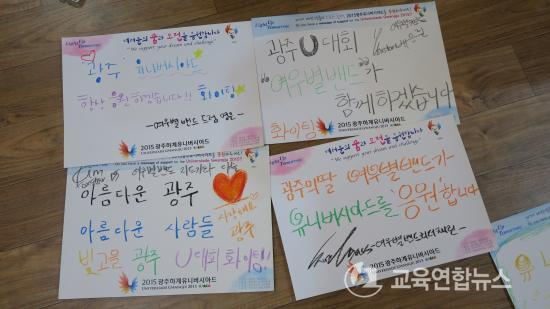 Light Up Tomorrow
여러분의 꿈과 도전을 응원합니다
"We support your dream and challenge"
광주 유니버시아드
항상 응원 하겠습니다!! 화이팅
-여우별 밴드 드럼
2015 광주하계유니버시아드
UNIVERSIADE GWANGJU 2015 KOREA
Light Up Tomorrow
광주 U대회
"여우별밴드"가
함께 하겠습니다
화이팅
2015 광주하계유니버시아드
UNIVERSIADE GWANGJU 2015 KOREA
여우별 밴드
아름다운 광주
아름다운 사람들
사랑해요
광주
빛고을 광주 U대회 화이팅!!
2015 광주하계유니버시아드
UNIVERSIADE GWANGJU 2015 KOREA
Light Up Tomorrow
여러분의 꿈과 도전을 응원합니다
"We support your dream and challenge"
광주의딸 여우별밴드가
유니버시아드를 응원합니다
-여우별밴드
2015 광주하계유니버시아드
UNIVERSIADE GWANGJU 2015 KOREA
교육연합뉴스